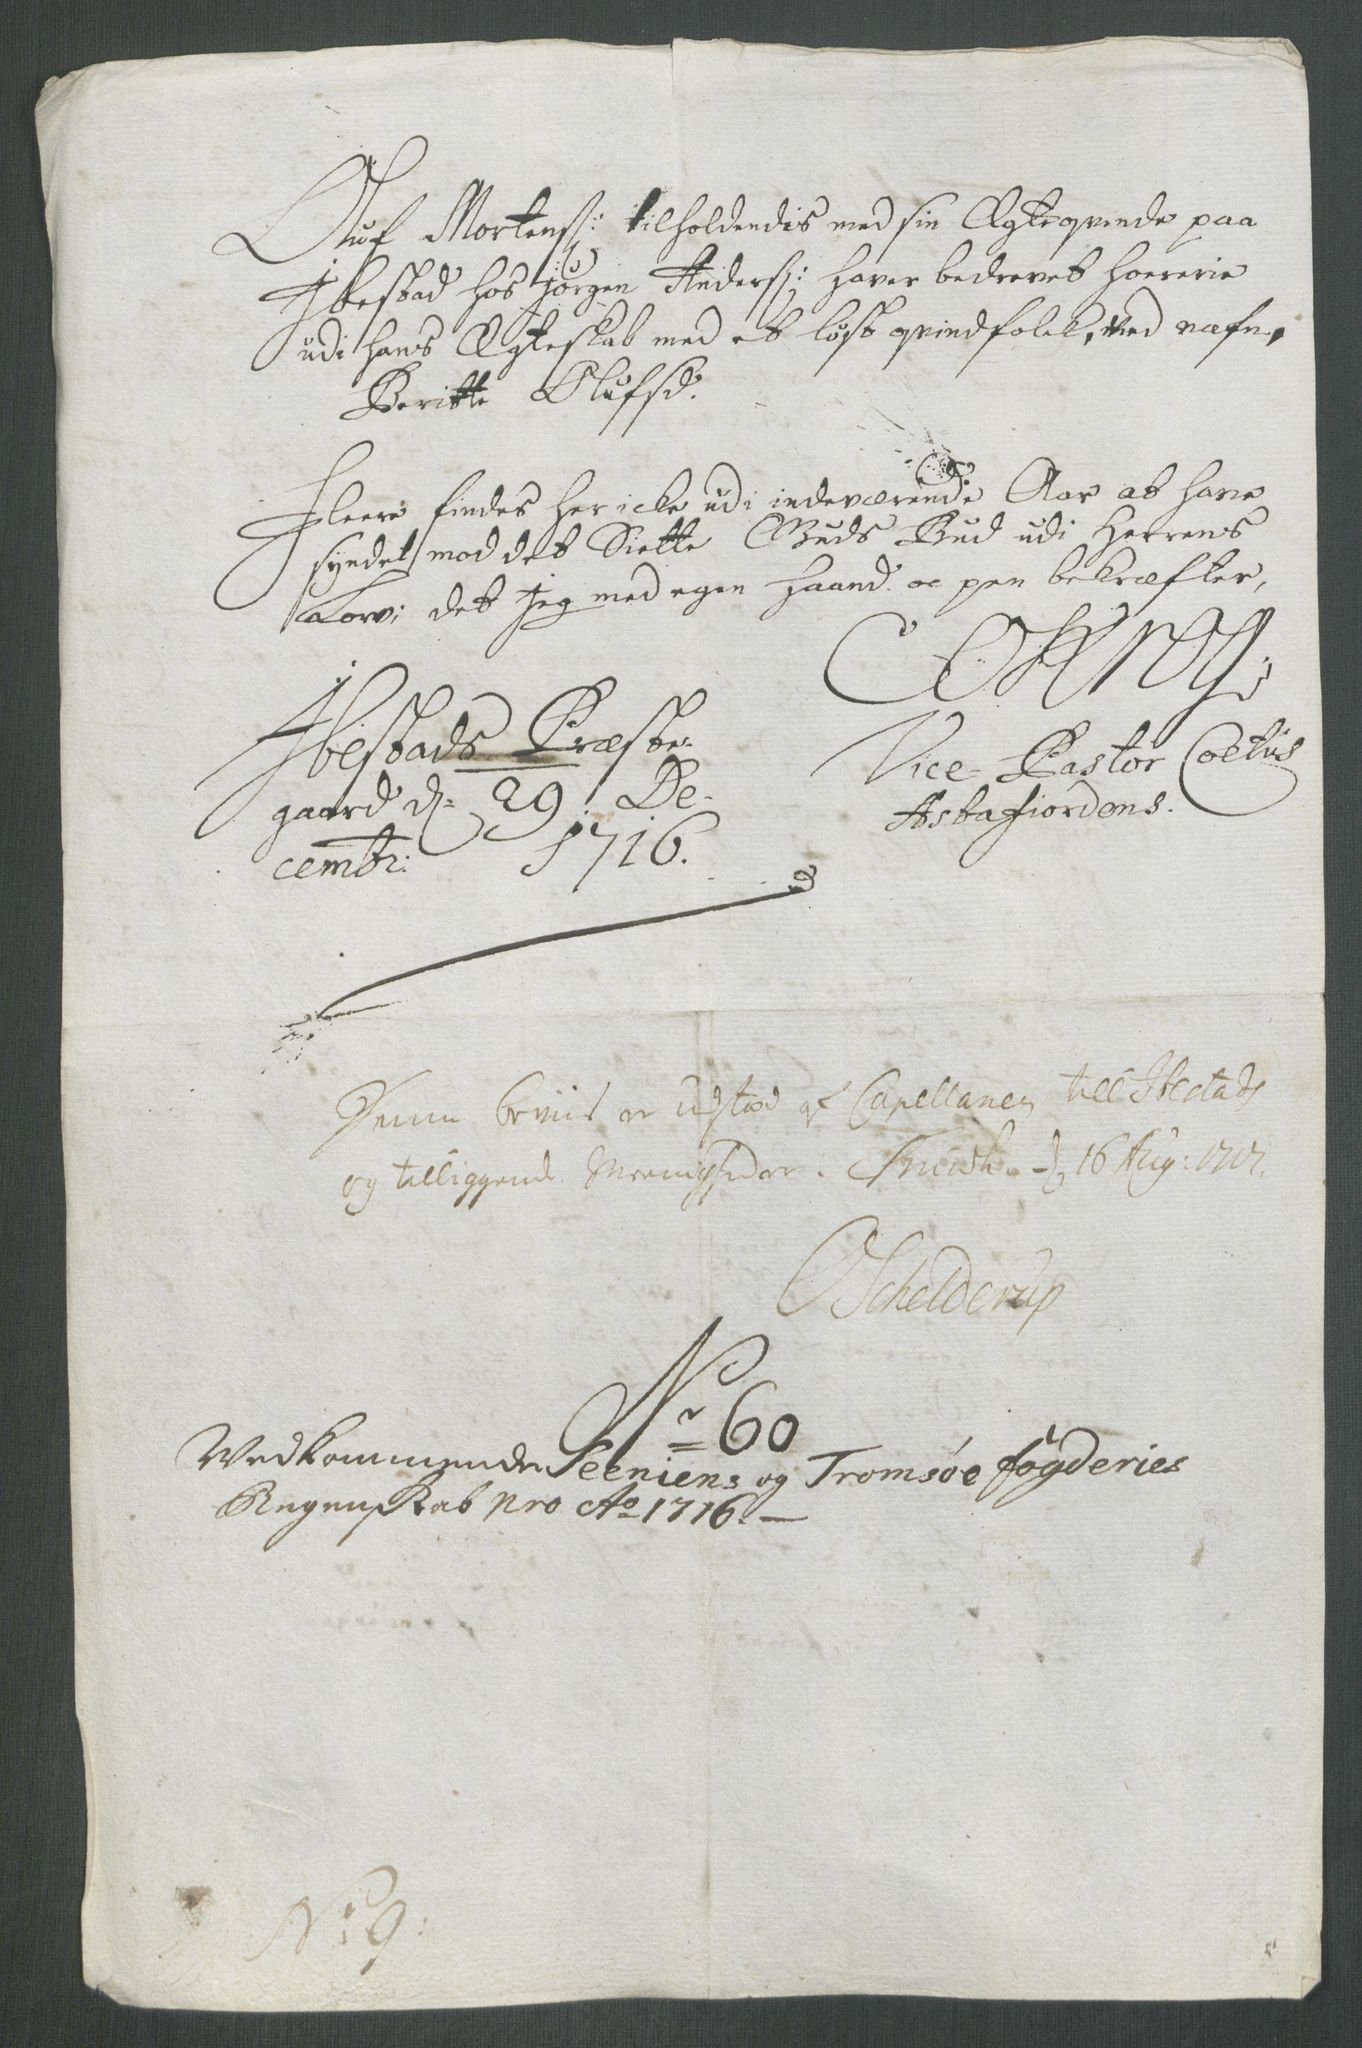 Oluf Mortens: tilholdendis med sin Ægteqvinde paa
Ibestad hos Jörgen Anders: haver bedrevet hoererie
udi hans Ægteskab med et løst qvindfolck, ved nafn,
Beritte Olufsd.
Fleere findes her icke udi indeværende Aar at have
syndet mod det Siette Guds Bud udi Herrens
Lov; det Jeg med egen haand oc pen bekræfter,
Ibestads Præste-
gaard d: 29 De-
cembr: 1716.
Vice-Pastor Coetus
Astafiordens.
Denne beviis er udstæd af Capellanen till Ibestads
og tilliggende Meenigheder. d 16 Aug: 1717.
OSchelderup
Nr 60
Vedkommende Seeniens og Tromsøe fogderies
Regenskab pro Ao 1716.
No 9: